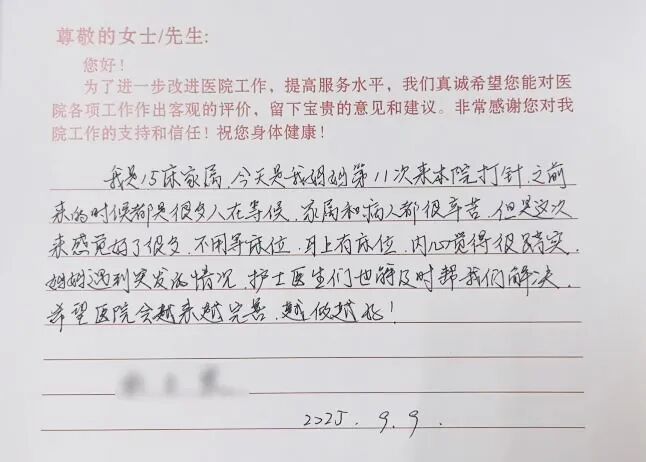 尊敬的女士/先生:
您好!
为了进一步改进医院工作，提高服务水平，我们真诚希望您能对医
院各项工作作出客观的评价，留下宝贵的意见和建议。非常感谢您对我
院工作的支持和信任! 祝您身体健康!
我是15床家属，今天是我妈妈第11次来本院打针，之前
来的时候都是很多人在等候，家属和病人都很辛苦，但是这次
来感觉好了很多，不用等床位，马上有床位，内心觉得很踏实，
妈妈遇到突发的情况，护士医生们也能及时帮我们解决，
希望医院会越来越完善，越做越好!
2025.9.9.